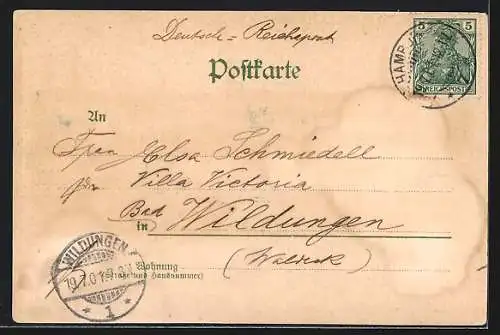 Deutsche = Reichspost
Postkarte
5 5
REICHSPOST
HAMB
An
Frau Elsa Schmiedell
Villa Victoria
Bad
in Wildungen
(Waldeck)
Wohnung
(Straße und Hausnummer)
WILDUNGEN
19.7.0
* 1 *